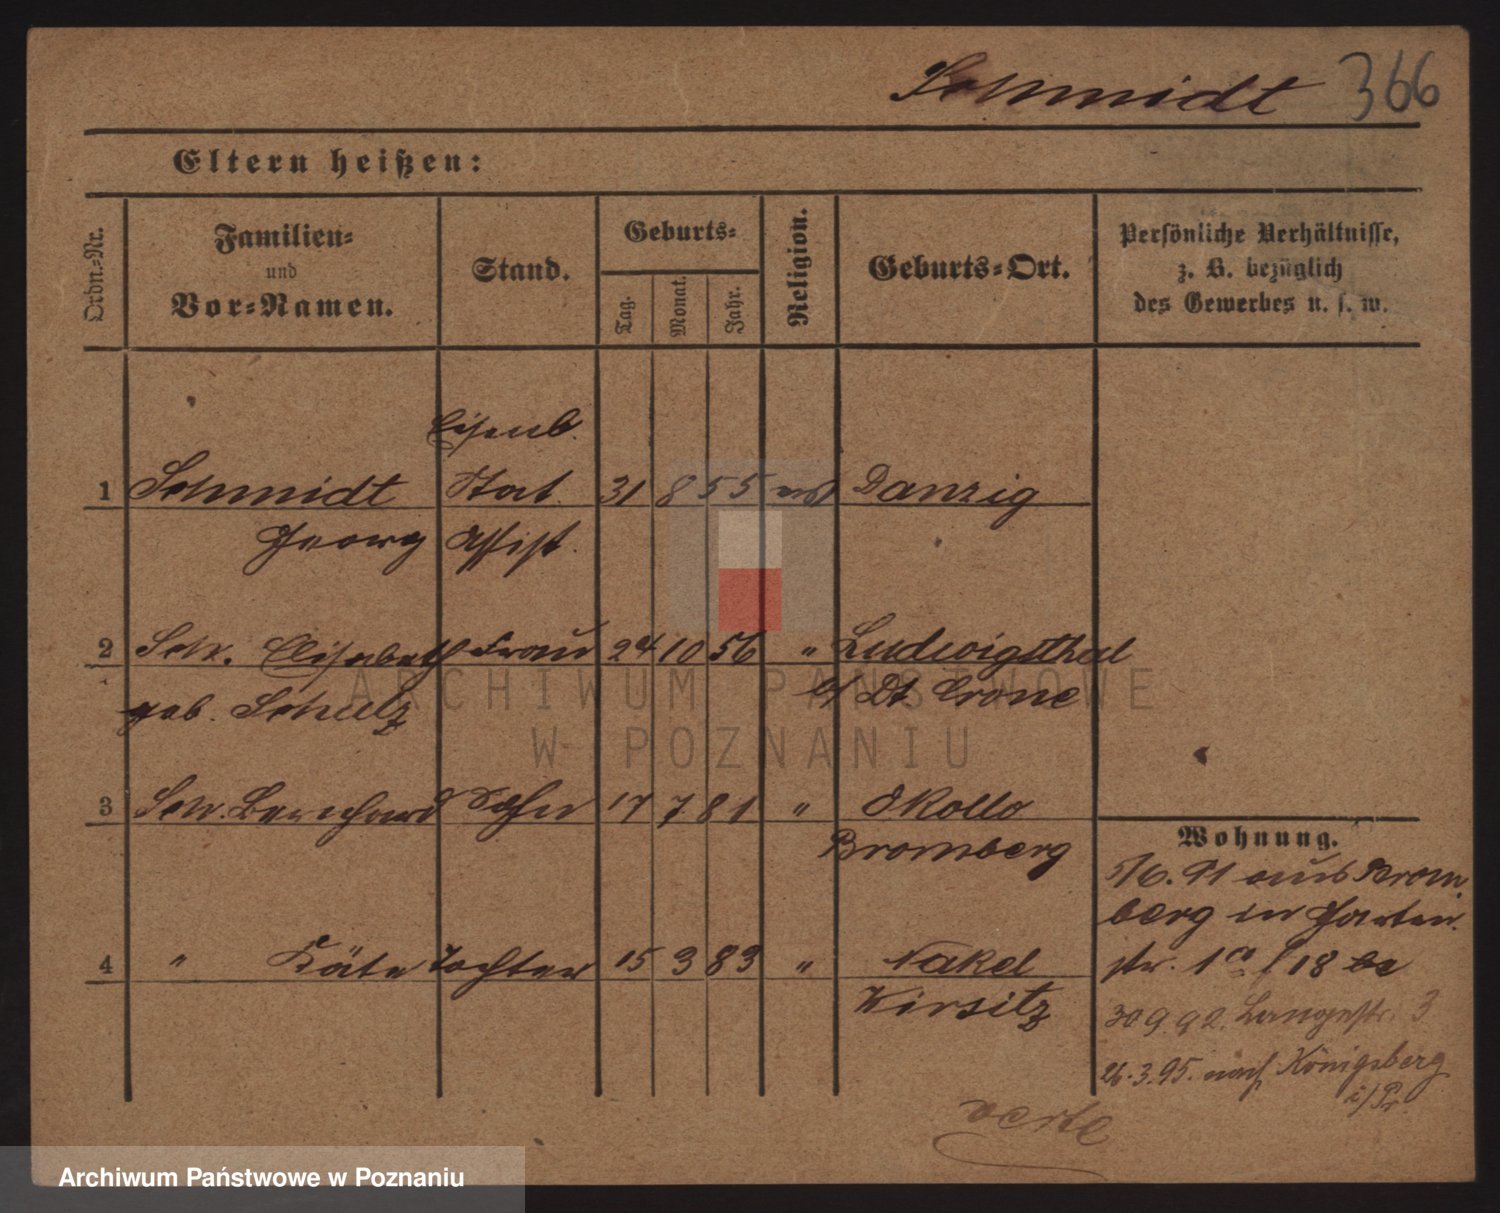 Schmidt 366
Eltern heißen:
Ordn.-Nr.
Familien-
und
Vor-Namen.
Stand.
Geburts-
Tag.
Monat.
Jahr.
Religion.
Geburts-Ort.
Persönliche Verhältnisse,
z. B. bezüglich
des Gewerbes u. s. w.
Eisenb.
1 Schmidt Stat. 31 8 55 Danzig
Georg Assist.
2 Sch. Elisabeth Frau 24 10 56 " Ludwigsthal
geb. Schulz Dt. Crone
3 Sch. Bernhard Sohn 17 7 81 "
Bromberg
4 " Käte Tochter 15 3 83 " Nakel
Wirsitz
Wohnung.
5/6. 91 aus Brom
berg in Garten
str. 1a / 18
30 9. 92. Langestr. 3
26. 3. 95. nach Königsberg
i/Pr
verte
ARCHIWUM PAŃSTWOWE
W POZNANIU
Archiwum Państwowe w Poznaniu